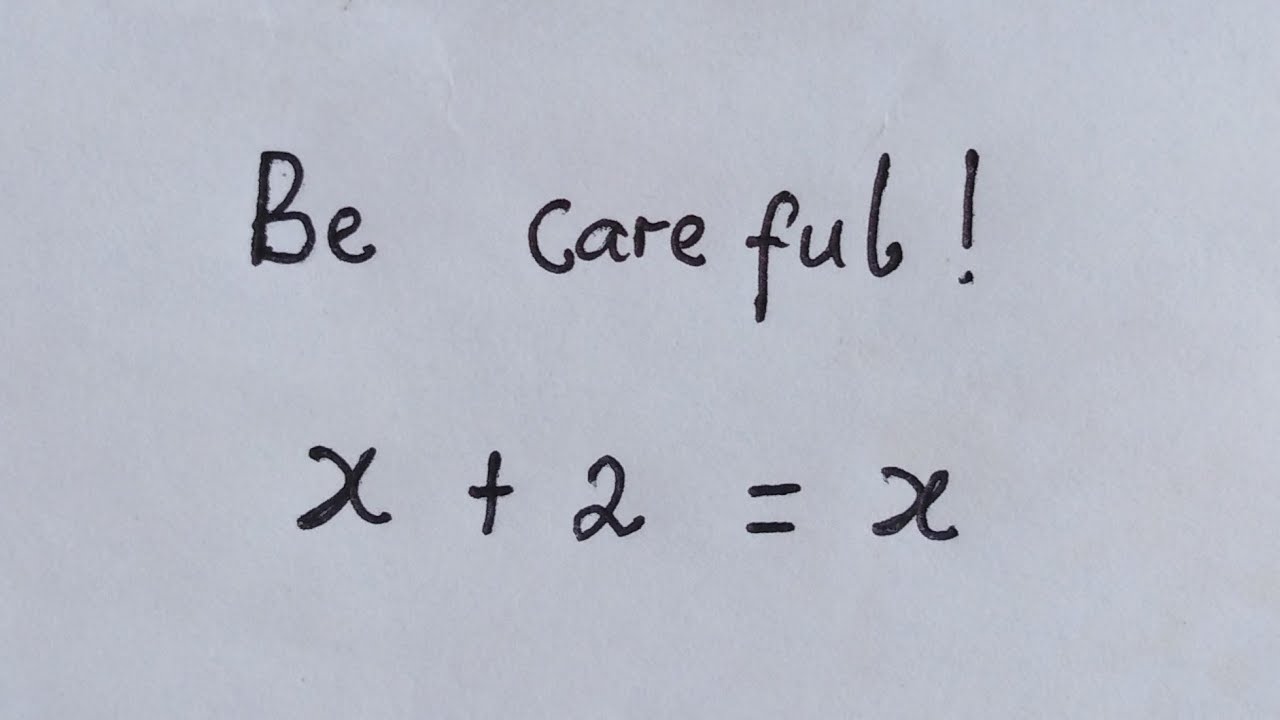 Be careful!
x + 2 = x